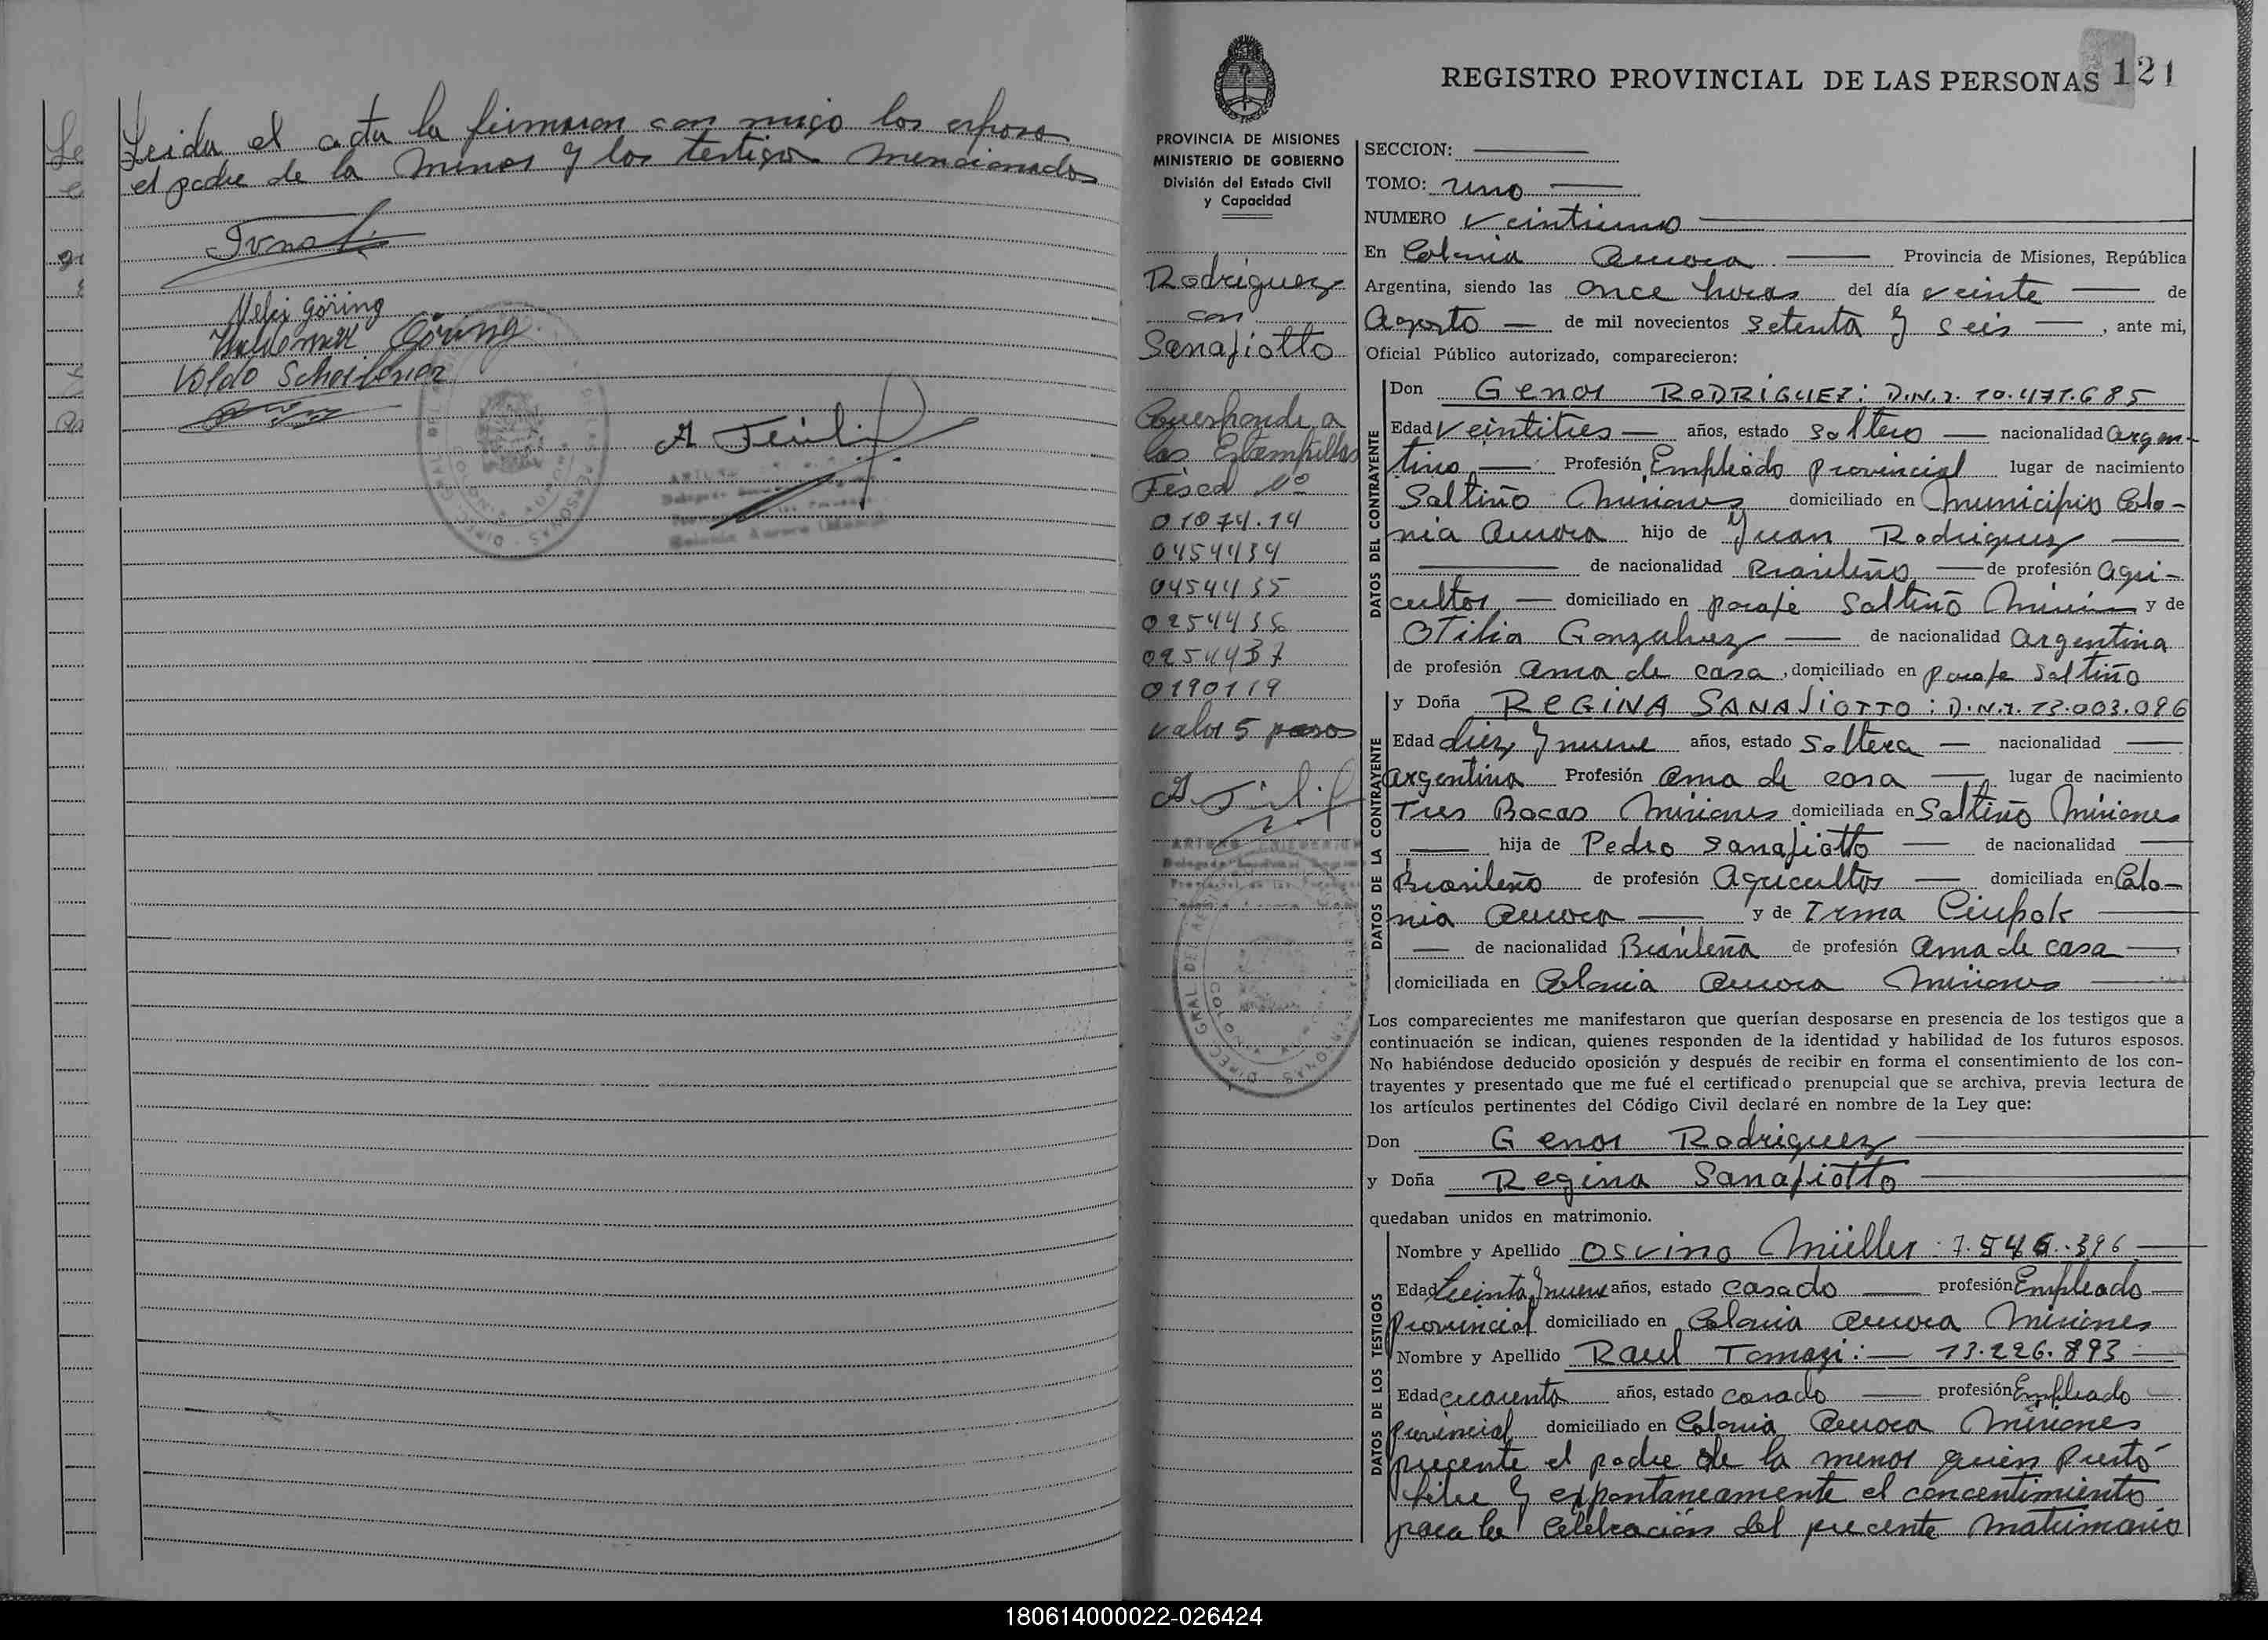 Leida el acta la firmaron con migo los esposo
el padre de la menor y los testigos mencionados
Nelci Göring
Göring
REGISTRO PROVINCIAL DE LAS PERSONAS 121
PROVINCIA DE MISIONES
MINISTERIO DE GOBIERNO
División del Estado Civil
y Capacidad
Rodriguez
con
Sanafiotto
Corresponde a
las Estampillas
Fiscal Nº
0454434
0454435
0190119
valor 5 pesos
SECCION:
TOMO: uno
NUMERO Veintiuno
En Colonia Aurora Provincia de Misiones, República
Argentina, siendo las once horas del día veinte de
Agosto de mil novecientos setenta y seis, ante mi,
Oficial Público autorizado, comparecieron:
DATOS DEL CONTRAYENTE
Don Genor RODRIGUEZ: D.N.I. 10.471.685
Edad Veintitres años, estado soltero nacionalidad argen-
tino Profesión Empleado provincial lugar de nacimiento
Saltiño Misiones domiciliado en Municipio Colo-
nia Aurora hijo de Juan Rodriguez
de nacionalidad Brasileño de profesión agri-
cultor, domiciliado en paraje Saltiño y de
Otilia Gonzalvez de nacionalidad argentina
de profesión ama de casa, domiciliado en paraje Saltiño
DATOS DE LA CONTRAYENTE
y Doña REGINA SANAFIOTTO: D.N.I. 13.003.096
Edad diez y nueve años, estado Soltera nacionalidad
argentina Profesión ama de casa lugar de nacimiento
Tres Bocas Misiones domiciliada en Saltiño Misiones
hija de Pedro Sanafiotto de nacionalidad
Brasileño de profesión Agricultor domiciliada en Colo-
nia Aurora y de Irma Ciupak
de nacionalidad Brasileña de profesión ama de casa,
domiciliada en Colonia Aurora Misiones
Los comparecientes me manifestaron que querían desposarse en presencia de los testigos que a
continuación se indican, quienes responden de la identidad y habilidad de los futuros esposos.
No habiéndose deducido oposición y después de recibir en forma el consentimiento de los con-
trayentes y presentado que me fué el certificado prenupcial que se archiva, previa lectura de
los artículos pertinentes del Código Civil declaré en nombre de la Ley que:
Don Genor Rodriguez
y Doña Regina Sanafiotto
quedaban unidos en matrimonio.
DATOS DE LOS TESTIGOS
Nombre y Apellido Osvino Müller 7.546.396
Edad treinta y nueve años, estado casado profesión Empleado
provincial domiciliado en Colonia Aurora Misiones
Nombre y Apellido Raul Tomazi: 13.226.893
Edad cuarenta años, estado casado profesión Empleado
provincial domiciliado en Colonia Aurora Misiones
precente el padre de la menor quien prestó
libre y expontaneamente el concentimiento
para la celebración del precente matrimonio
180614000022-026424